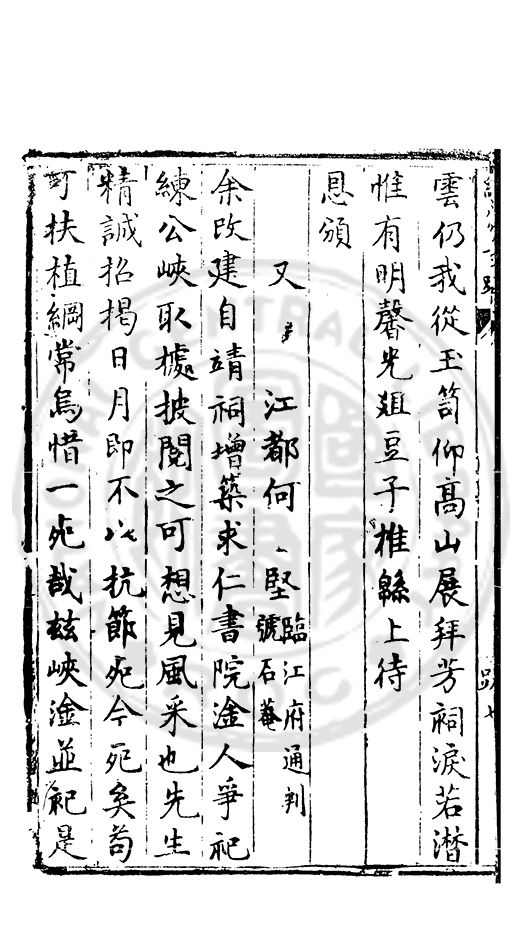 雲仍我從玉笥仰高山展拜芳祠淚若潸
惟有明馨光爼豆子推緜上待
恩頒
又 江都何 堅 臨江府通判 號石菴
余改建自靖祠增築求仁書院淦人爭祀
練公峽取㯫披閱之可想見風采也先生
精誠招揭日月即不以抗節死今死矣苟
可扶植綱常烏惜一死哉玆峽淦並祀是